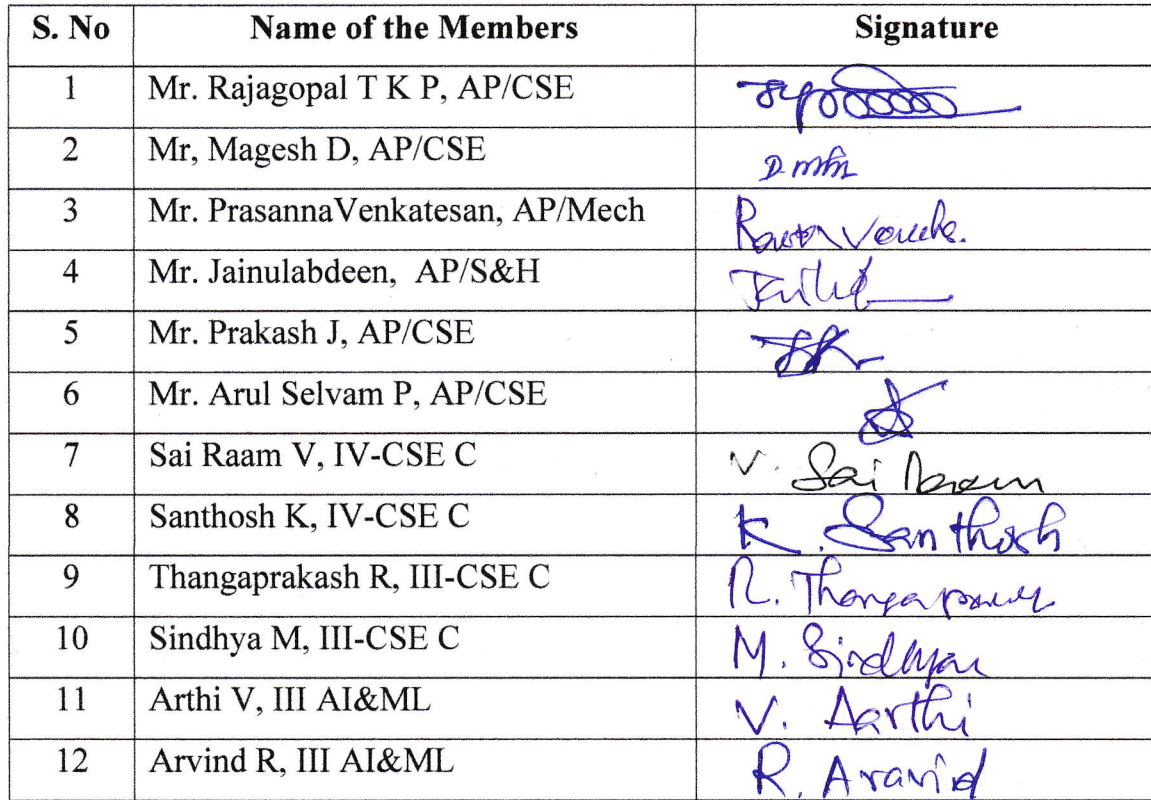 S. No Name of the Members Signature
1 Mr. Rajagopal T K P, AP/CSE
2 Mr, Magesh D, AP/CSE
3 Mr. PrasannaVenkatesan, AP/Mech
4 Mr. Jainulabdeen, AP/S&H
5 Mr. Prakash J, AP/CSE
6 Mr. Arul Selvam P, AP/CSE
7 Sai Raam V, IV-CSE C V. Sai Raam
8 Santhosh K, IV-CSE C K. Santhosh
9 Thangaprakash R, III-CSE C R.
10 Sindhya M, III-CSE C M. Sindhya
11 Arthi V, III AI&ML V. Aarthi
12 Arvind R, III AI&ML R. Aravind